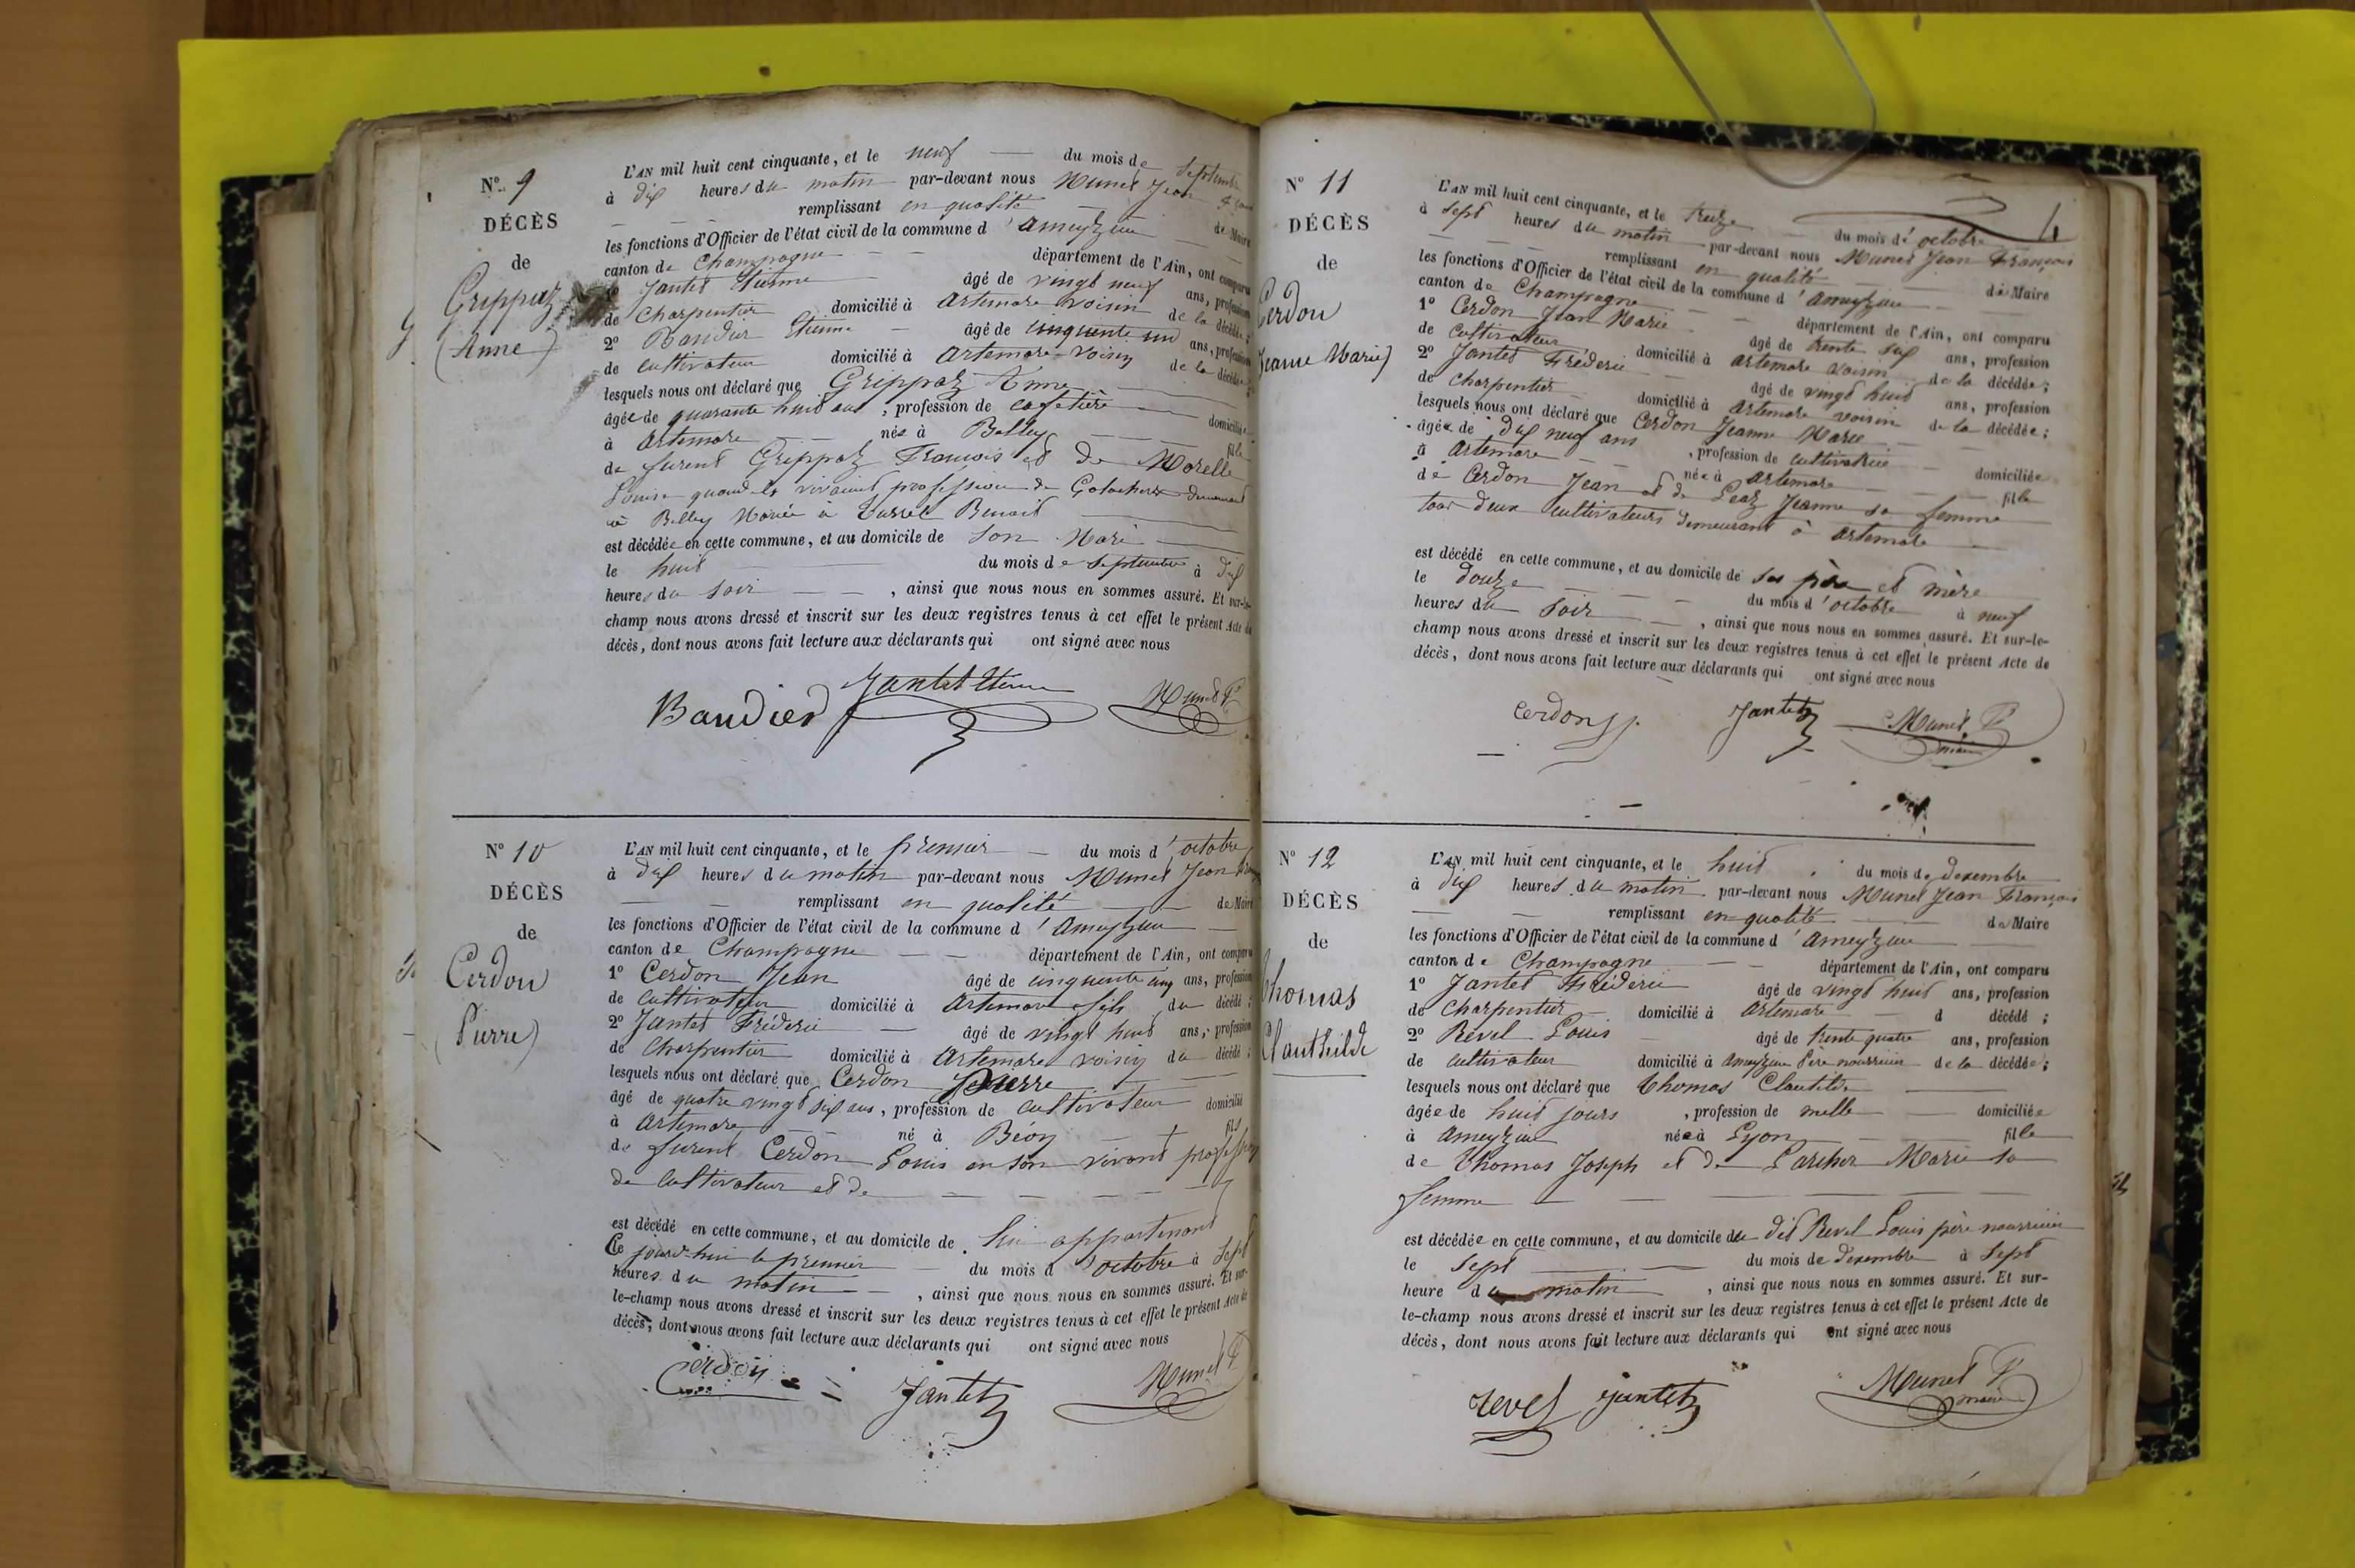 N° 9
DÉCÈS
de
Grippaz
(Anne)
L'AN mil huit cent cinquante, et le neuf du mois de septembre
à dix heures du matin par-devant nous Munet Jean
remplissant en qualité de Maire
les fonctions d'Officier de l'état civil de la commune d'ameyzieu
canton de Champagne département de l'Ain, ont comparu
1° Jantet Etienne âgé de vingt neuf ans, profession
de Charpentier domicilié à Artemare voisin de la décédée;
2° Baudier Etienne âgé de cinquante un ans, profession
de cultivateur domicilié à Artemare voisin de la décédée
lesquels nous ont déclaré que Grippaz Anne
âgée de quarante huit ans, profession de cafetière domiciliée
à Artemare née à Belley fille
de furent Grippaz François et de Morelle
Louise quand ils vivaient profession de demeurant
à Belley Mariée à Benoit
est décédée en cette commune, et au domicile de son Mari
le huit du mois de septembre à dix
heures du soir, ainsi que nous nous en sommes assuré. Et sur-le-
champ nous avons dressé et inscrit sur les deux registres tenus à cet effet le présent Acte de
décès, dont nous avons fait lecture aux déclarants qui ont signé avec nous
Baudier Jantet Etienne Munet
N° 10
DÉCÈS
de
Cerdon
(Pierre)
L'AN mil huit cent cinquante, et le premier du mois d'octobre
à dix heures du matin par-devant nous Munet Jean
remplissant en qualité de Maire
les fonctions d'Officier de l'état civil de la commune d'ameyzieu
canton de Champagne département de l'Ain, ont comparu
1° Cerdon Jean âgé de cinquante cinq ans, profession
de cultivateur domicilié à Artemare fils du décédé;
2° Jantet Fréderic âgé de vingt huit ans, profession
de Charpentier domicilié à Artemare voisin du décédé;
lesquels nous ont déclaré que Cerdon Pierre
âgé de quatre vingt dix ans, profession de cultivateur domicilié
à Artemare né à Béon fils
de furent Cerdon Louis en son vivant profession
de cultivateur et de
est décédé en cette commune, et au domicile de lui appartenant
Ce jourd'hui le premier du mois d'octobre à sept
heures du matin, ainsi que nous nous en sommes assuré. Et sur-
le-champ nous avons dressé et inscrit sur les deux registres tenus à cet effet le présent Acte de
décès, dont nous avons fait lecture aux déclarants qui ont signé avec nous
Cerdon Jantet Munet
N° 11
DÉCÈS
de
Cerdon
Jeanne Marie)
L'AN mil huit cent cinquante, et le treize du mois d'octobre
à sept heures du matin par-devant nous Munet Jean François
remplissant en qualité de Maire
les fonctions d'Officier de l'état civil de la commune d'ameyzieu
canton de Champagne département de l'Ain, ont comparu
1° Cerdon Jean Marie âgé de trente six ans, profession
de cultivateur domicilié à Artemare voisin de la décédée;
2° Jantet Fréderic âgé de vingt huit ans, profession
de charpentier domicilié à Artemare voisin de la décédée;
lesquels nous ont déclaré que Cerdon Jeanne Marie
âgée de dix neuf ans, profession de cultivatrice domiciliée
à Artemare née à Artemare fille
de Cerdon Jean et de Jeanne sa femme
tous deux cultivateurs demeurant à Artemare
est décédé en cette commune, et au domicile de ses père et mère
le douze du mois d'octobre à neuf
heures du soir, ainsi que nous nous en sommes assuré. Et sur-le-
champ nous avons dressé et inscrit sur les deux registres tenus à cet effet le présent Acte de
décès, dont nous avons fait lecture aux déclarants qui ont signé avec nous
cerdon Jantet Munet
maire
N° 12
DÉCÈS
de
Thomas
Clauthilde
L'AN mil huit cent cinquante, et le huit du mois de dexembre
à dix heures du matin par-devant nous Munet Jean François
remplissant en qualité de Maire
les fonctions d'Officier de l'état civil de la commune d'ameyzieu
canton de Champagne département de l'Ain, ont comparu
1° Jantet Fréderic âgé de vingt huit ans, profession
de Charpentier domicilié à Artemare d décédé;
2° Revel Louis âgé de trente quatre ans, profession
de cultivateur domicilié à ameyzieu Père nourricier de la décédée;
lesquels nous ont déclaré que Thomas Clautilde
âgée de huit jours, profession de nulle domiciliée
à ameyzieu née à Lyon fille
de Thomas Joseph et de Larcher Marie sa
femme
est décédée en cette commune, et au domicile du dit Revel Louis père nourricier
le sept du mois de dexembre à sept
heure du matin, ainsi que nous nous en sommes assuré. Et sur-
le-champ nous avons dressé et inscrit sur les deux registres tenus à cet effet le présent Acte de
décès, dont nous avons fait lecture aux déclarants qui ont signé avec nous
revel Jantet Munet
maire